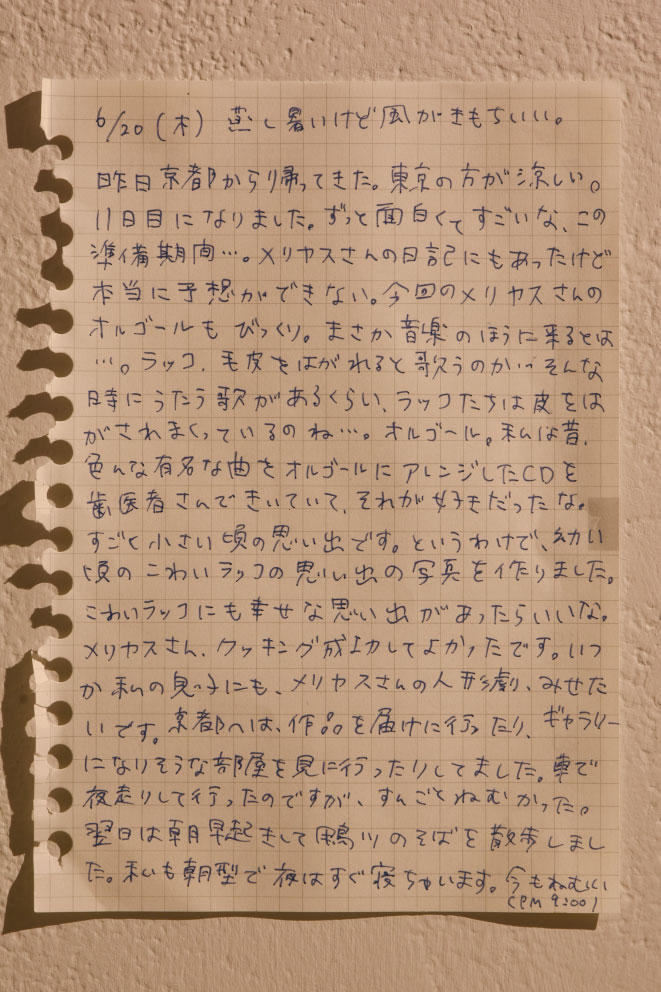 6/20(木) 蒸し暑いけど風がきもちいい。
昨日京都から帰ってきた。東京の方が涼しい。
11日目になりました。ずっと面白くてすごいな、この
準備期間…。メリヤスさんの日記にもあったけど
本当に予想ができない。今回のメリヤスさんの
オルゴールもびっくり。まさか音楽のほうに来るとは
…。ラッコ、毛皮をはがれると歌うのか…そんな
時にうたう歌があるくらい、ラッコたちは皮をは
がされまくっているのね…。オルゴール。私は昔、
色んな有名な曲をオルゴールにアレンジしたCDを
歯医者さんできいていて、それが好きだったな。
すごく小さい頃の思い出です。というわけで、幼い
頃のこわいラッコの思い出の写真を作りました。
こわいラッコにも幸せな思い出があったらいいな。
メリヤスさん、クッキング成功してよかったです。いつ
か私の息子にも、メリヤスさんの人形劇、みせた
いです。京都へは、作品を届けに行ったり、ギャラリー
になりそうな部屋を見に行ったりしてました。車で
夜走りして行ったのですが、すんごとねむかった。
翌日は朝早起きして鴨川のそばを散歩しまし
た。私も朝型で夜はすぐ寝ちゃいます。今もねむい
(PM 9:00)